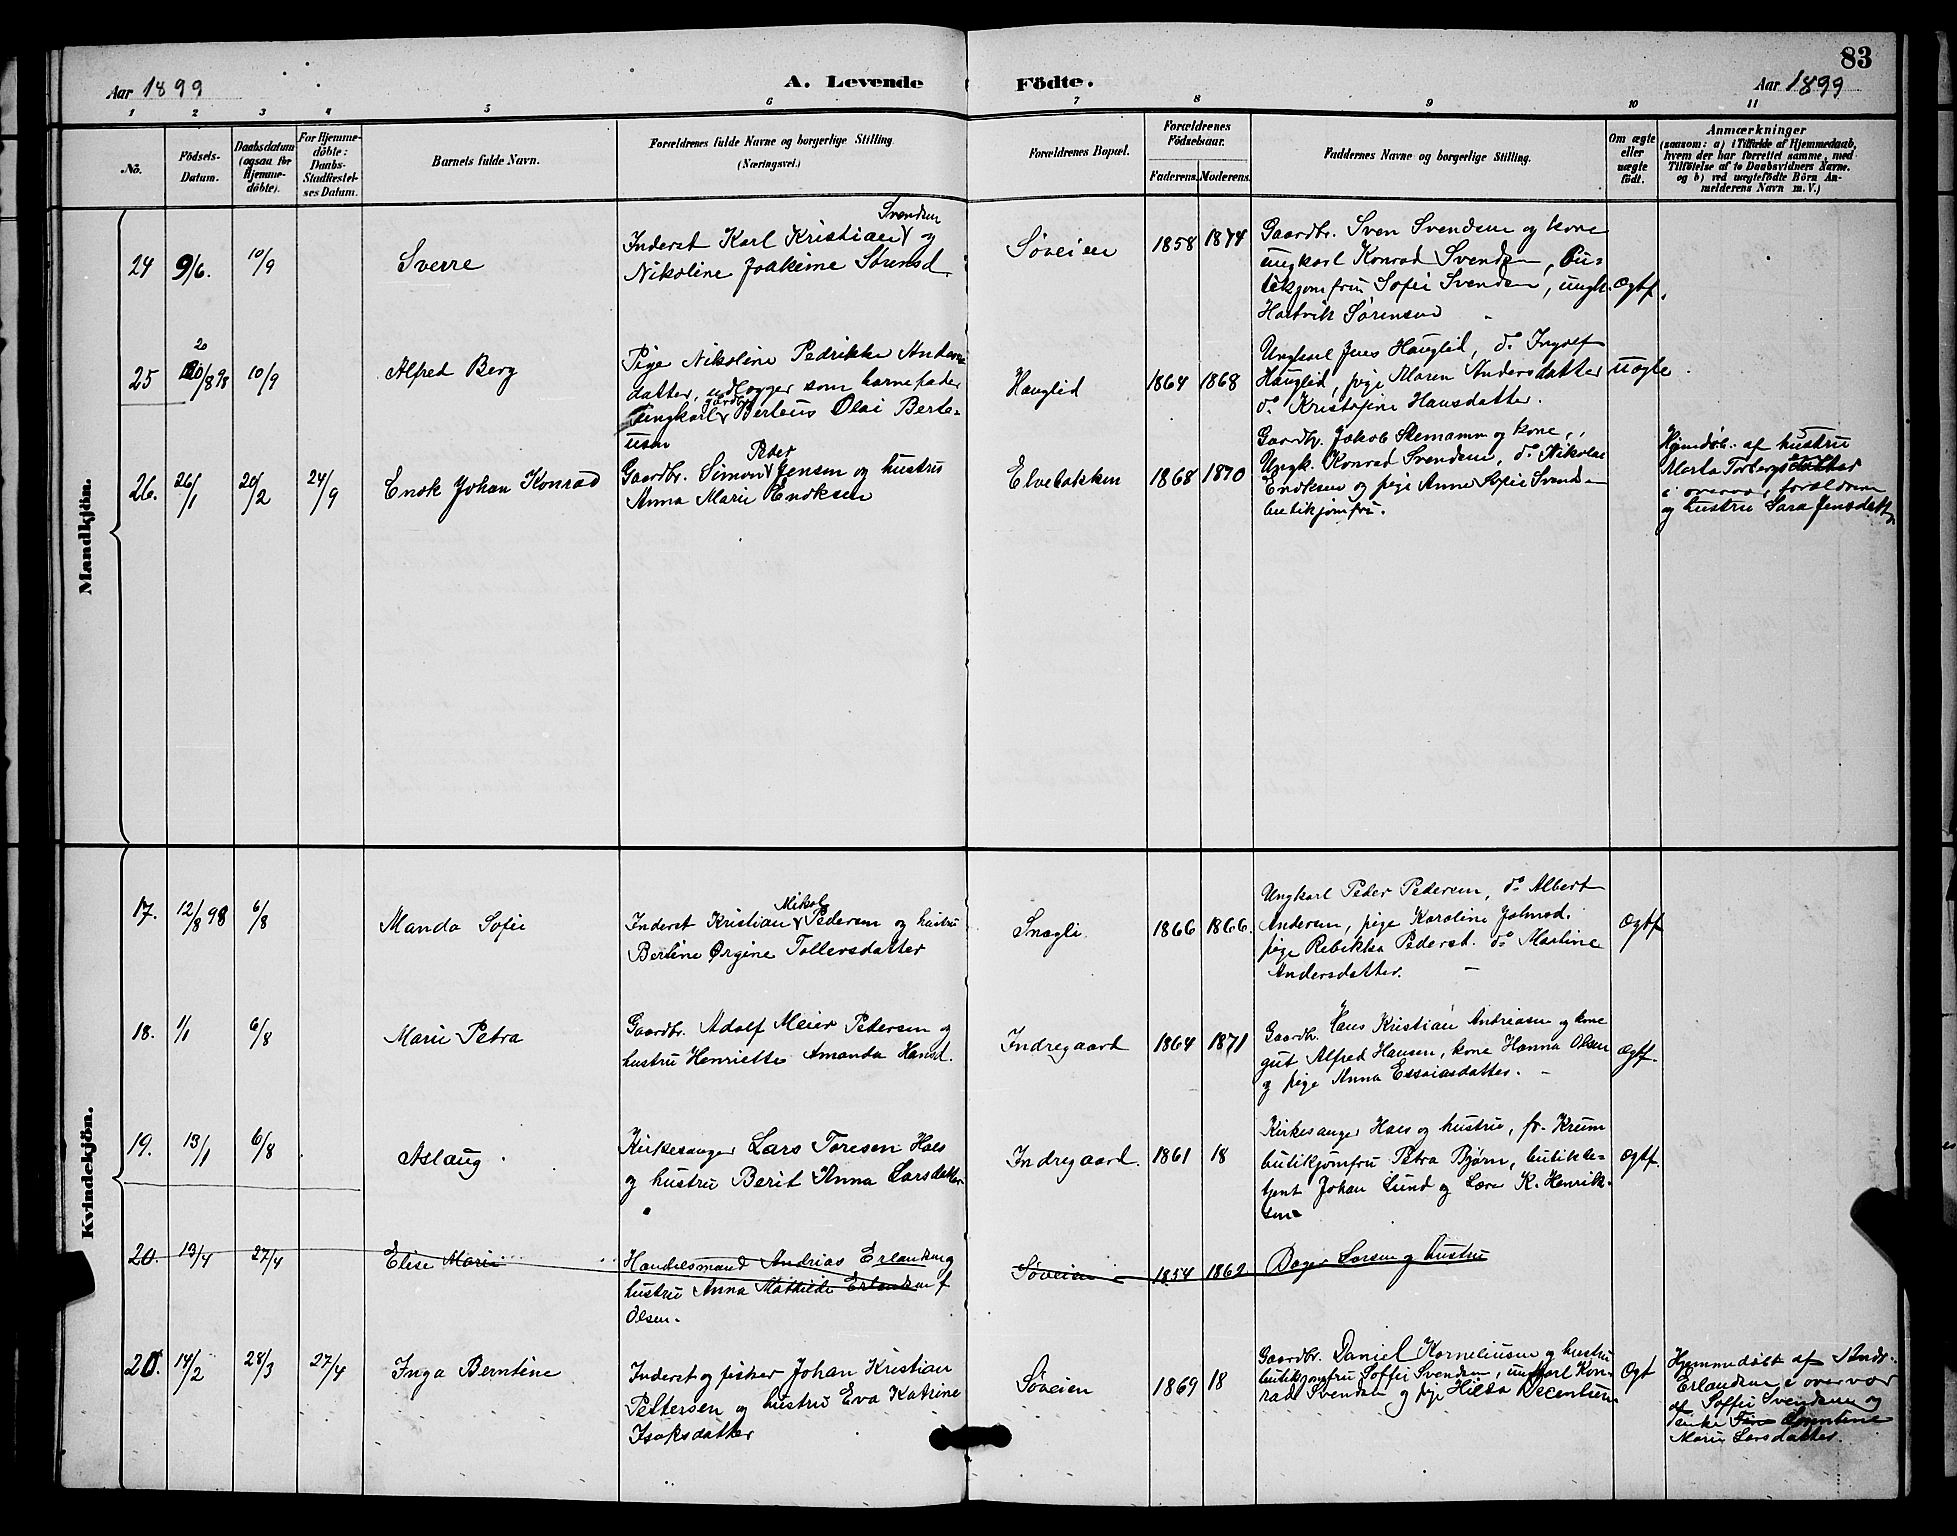 83
Aar 1899
A. Levende Födte.
Aar 1899
1 2 3 4 5 6 7 8 9 10 11
No.
Födsels-
Datum.
Daabsdatum
(ogsaa for
Hjemme-
döbte).
For Hjemme-
döbte:
Daabs-
Stadfestel-
ses Datum.
Barnets fulde Navn.
Forældrenes fulde Navne og borgerlige Stilling
(Næringsvei.)
Forældrenes Bopæl.
Forældrenes
Födselsaar.
Faderens. Moderens.
Faddernes Navne og borgerlige Stilling.
Om ægte
eller
uægte
födt.
Anmærkninger
(saasom: a) i Tilfælde af Hjemmedaab,
hvem der har forrettet samme, med
Tilföielse af to Daabsvidners Navne,
og b) ved uægtefödte Börn An-
melderens Navn m. V.)
Mandkjön.
24 9/6. 10/9
Sverre
Svendsen
Inderst Karl Kristian og
Nikoline Joakime Sørensd.
Søveien
1858 1874
Gaardbr. Sven Svendsen og kone
ungkarl Konrad Svendsen, bu-
tikjomfru Sofie Svendsen, ungk.
Hartvik Sørensen
Ægtf.
25 20/8 98 10/9
Alfred Berg
Pige Nikoline Pedrikke Anders
datter, udlægger som barnefader
ungkarl gårdbr. Berteus Olai Berte-
usen
Hauglid
1864 1868
Ungkarl Jens Hauglid, do Ingolf
Hauglid, pige Maren Andersdatter
do Kristofine Hansdatter.
uægte
26. 26/1 20/2 24/9
Enok Johan Konrad
Peder
Gaardbr. Simon Jensen og hustru
Anna Marie Enoksen
Elvebakken
1868 1870
Gaardb. Jakob Stemann og kone,
Ungk. Konrad Svendsen, do Nikolai
Enoksen og pige Anne Sofie Svendsen
butikjomfru.
Hjemdøb. af hustru
Merta Torbergsdatter
i overvær forældrene
og hustru Sara Jensdatt.
Kvindekjön.
17. 12/8 98 6/8
Manda Sofie
Nikol
Inderst Kristian Pedersen og hustru
Bertine Ørgine Tollersdatter
Snøgli
1866 1866.
Ungkarl Peder Pedersen, do Albert
Andersen, pige Karoline Johnsd.
pige Rebekka Pederst. do Martine
Andersdatter.
Ægtf
18. 1/1 6/8
Marie Petra
Gaardbr. Adolf Meier Petersen og
hustru Henriette Amanda Hansd.
Indregaard
1864 1871
Gaardbr. Hans Kristian Andreasen og kone
gut Alfred Hansen, kone Hanna Olsen
og pige Anna Essaiasdatter.
Ægtf.
19. 13/1 6/8
Aslaug
Kirkesanger Lars Toresen Hals
og hustru Berit Anna Larsdatter
Indregaard.
1861 18
Kirkesanger Hals og hustru, fr. Krum
butikjomfru Petra Bjørn, butikbe-
tjent Johan Lund og Lære K. Henrik-
sen
Ægtf.
20. 13/4 27/4
Elise Marie
Handelsmand Andrias Erlandsen og
hustru Anna Mathilde Erlandsen f
Olsen.
Søveien
1854 1862
Bager Larsen og hustru
20. 14/2 28/3 27/4
Inga Berntine
Inderst og fisker Johan Kristian
Pettersen og hustru Eva Katrine
Isaksdatter
Søveien
1869 18
Gaardbr. Daniel Korneliusen og hustru
butikjomfru Soffie Svendsen, ungkarl Kon-
rad Svendsen og pige Hilda Vecentsen
Ægt
Hjemmedøbt af Andr.
Erlandsen i overvær
af Soffie Svendsen og
enke Berntine
Marie Larsdatter.